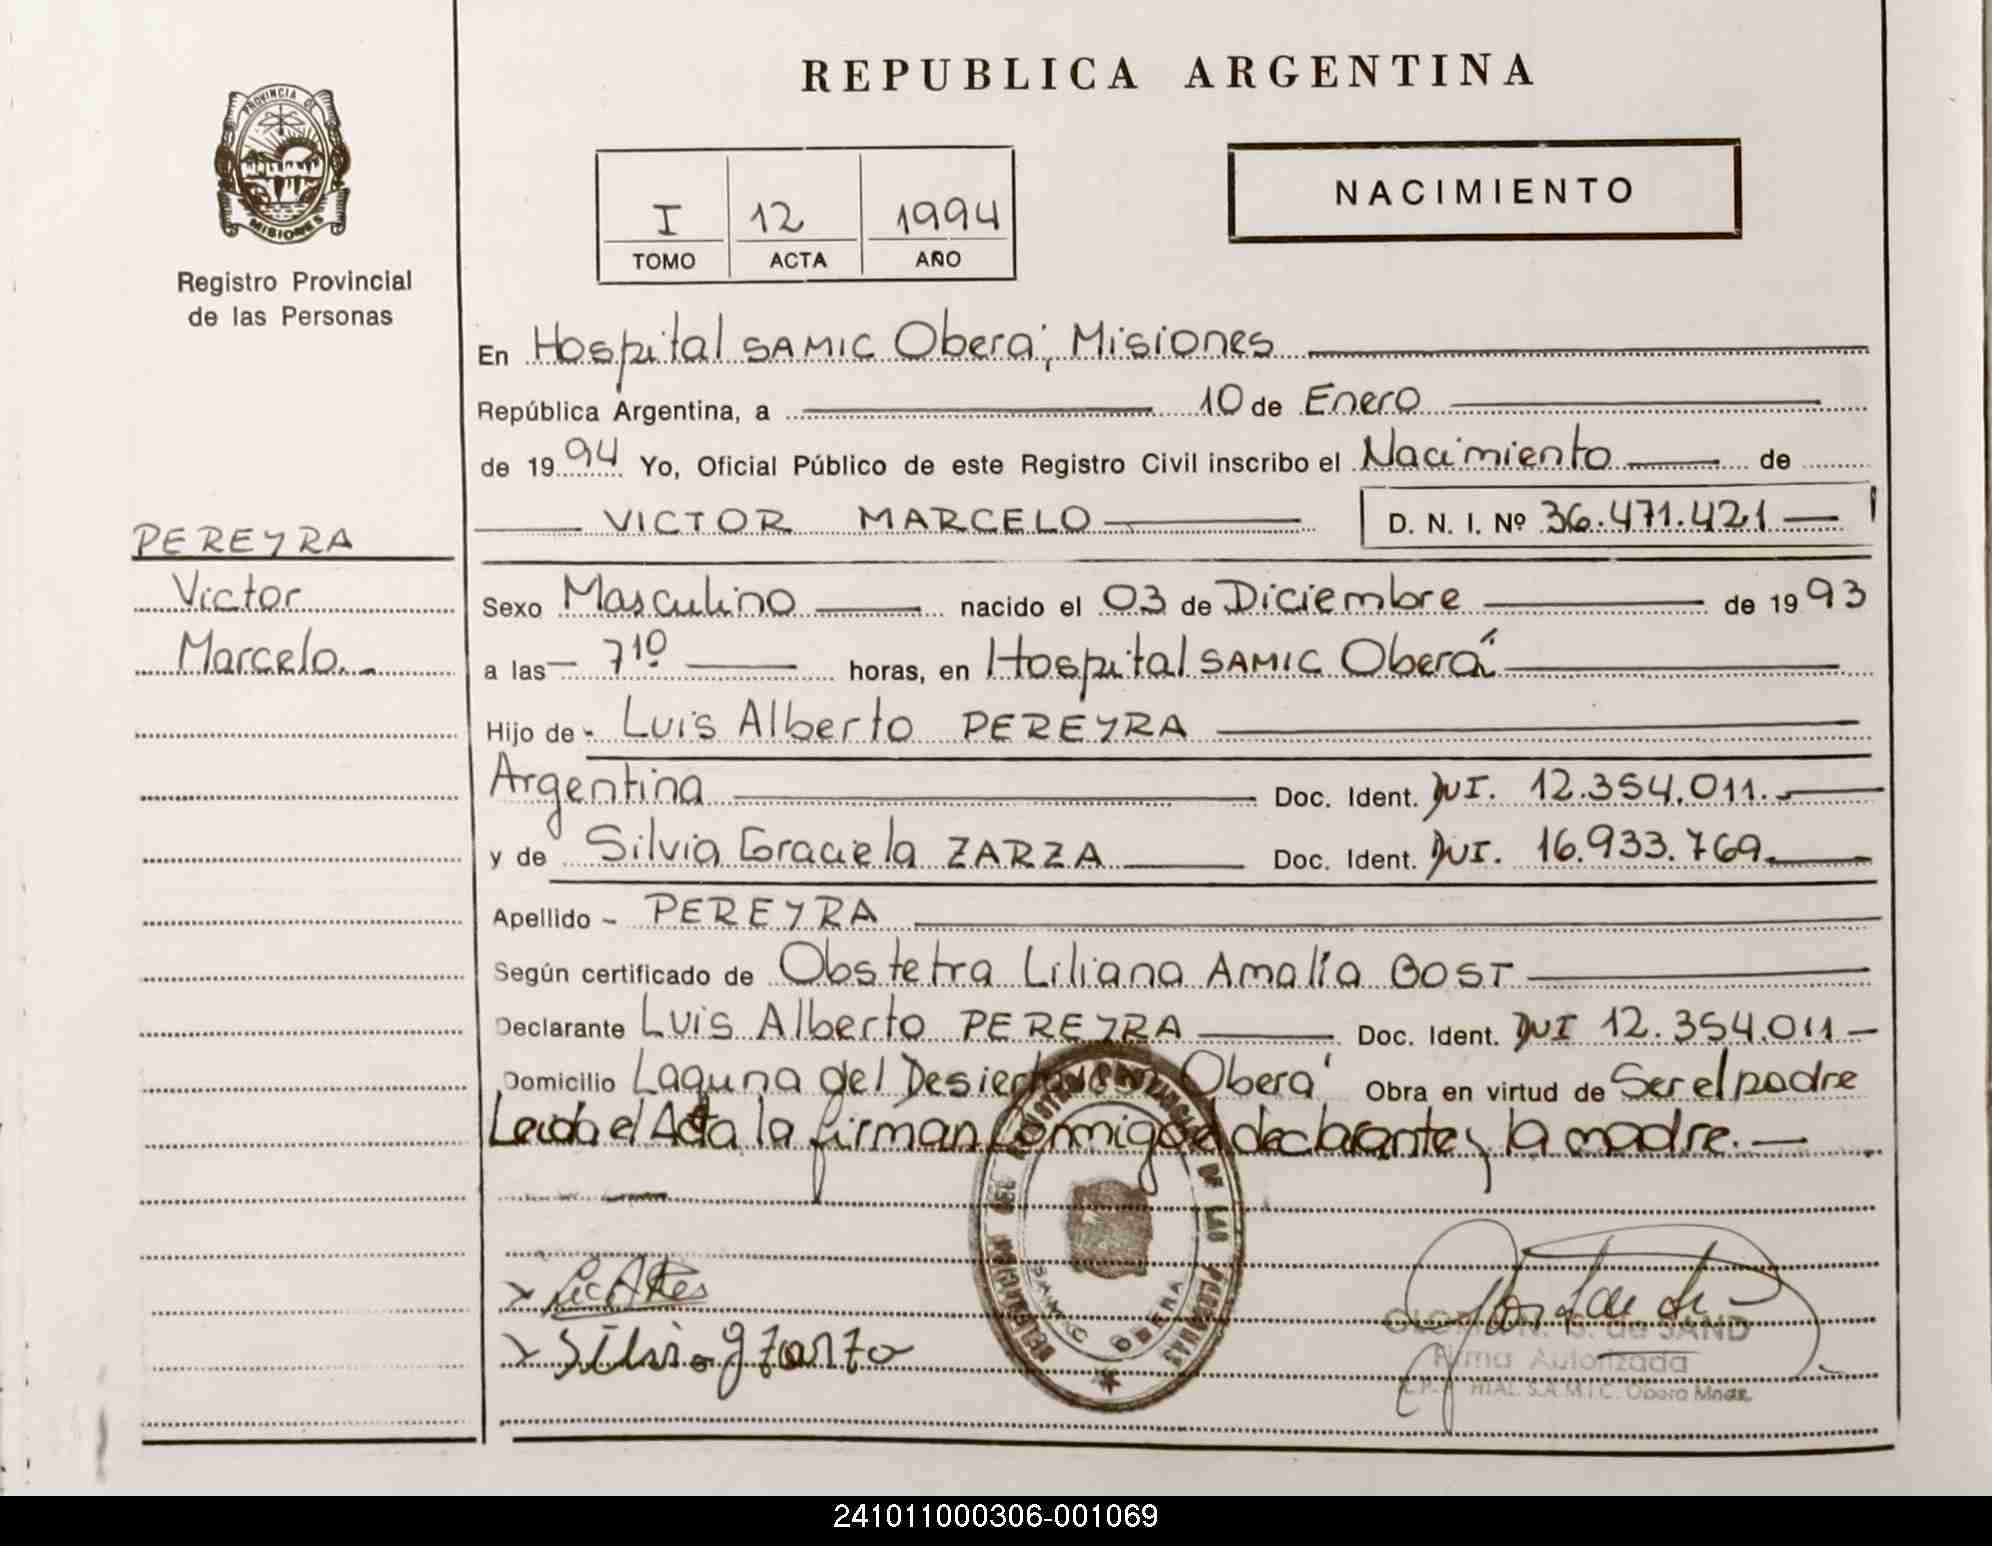 REPUBLICA ARGENTINA
PROVINCIA DE
MISIONES
Registro Provincial
de las Personas
I 12 1994
TOMO ACTA AÑO
NACIMIENTO
En Hospital SAMIC Oberá, Misiones
República Argentina, a 10 de Enero
de 1994 Yo, Oficial Público de este Registro Civil inscribo el Nacimiento de
VICTOR MARCELO D. N. I. Nº 36.471.421
PEREYRA
Victor
Marcelo.
Sexo Masculino nacido el 03 de Diciembre de 1993
a las 710 horas, en Hospital SAMIC Oberá
Hijo de Luis Alberto PEREYRA
Argentina Doc. Ident. DNI. 12.354.011.
y de Silvia Graciela ZARZA Doc. Ident. DNI. 16.933.769
Apellido PEREYRA
Según certificado de Obstetra Liliana Amalia BOST
Declarante Luis Alberto PEREYRA Doc. Ident. DNI 12.354.011
Domicilio Laguna del Oberá Obra en virtud de Ser el padre
Leida el Acta la firman conmigo el declarante y la madre.
DE LAS PERSONAS
SAMIC OBERA
Silvia g zarza
de SAND
Firma Autorizada
S.A.M.I.C. Obera Mnes.
241011000306-001069